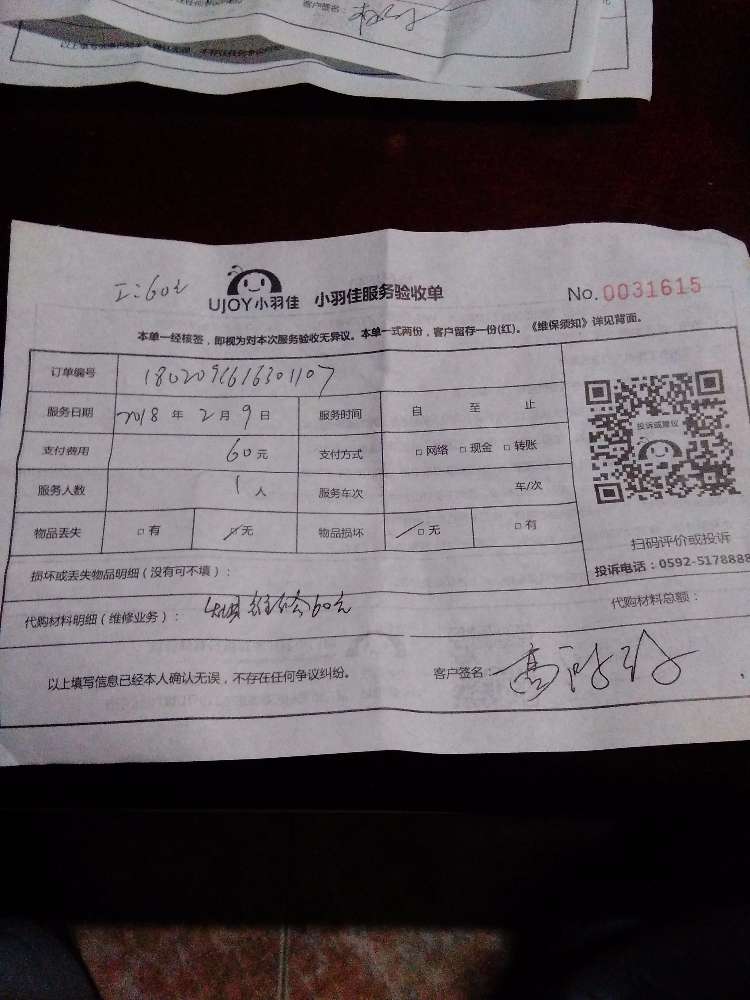 客户签名：
工：60元
UJOY小羽佳 小羽佳服务验收单 No.0031615
本单一经核签，即视为对本次服务验收无异议。本单一式两份，客户留存一份(红)。《维保须知》详见背面。
订单编号 180209616301107
服务日期 2018 年 2 月 9 日 服务时间 自 至 止
支付费用 60 元 支付方式 □ 网络 □ 现金 □ 转账
服务人数 1 人 服务车次 车/次
物品丢失 □ 有 □ 无 物品损坏 □ 无 □ 有
投诉或建议
扫码评价或投诉
投诉电话：0592-5178888
损坏或丢失物品明细（没有可不填）：
代购材料明细（维修业务）： 维修60元 代购材料总额：
以上填写信息已经本人确认无误，不存在任何争议纠纷。 客户签名：